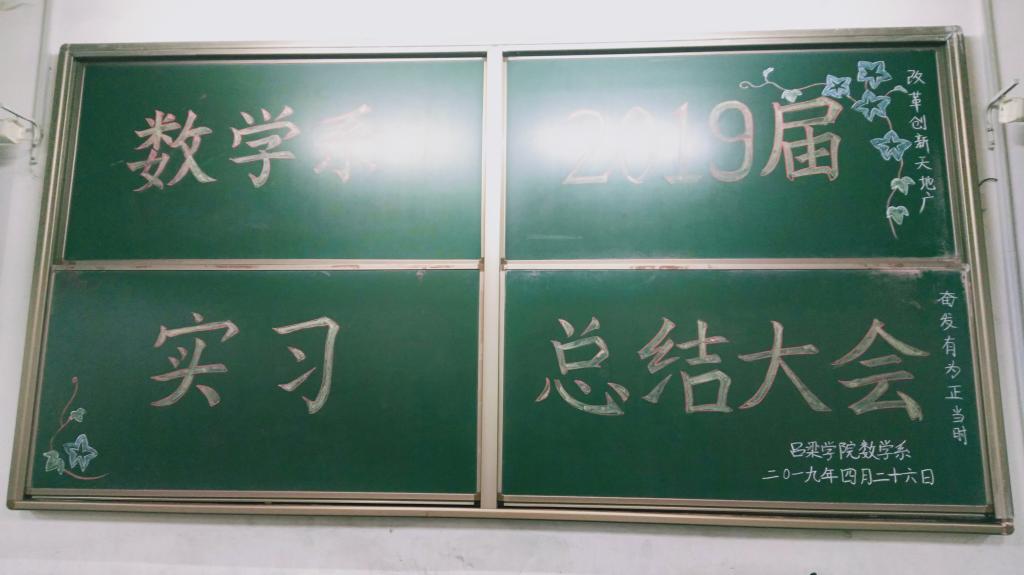 数学系 2019届
实习 总结大会
改革创新天地广
奋发有为正当时
吕梁学院数学系
二〇一九年四月二十六日